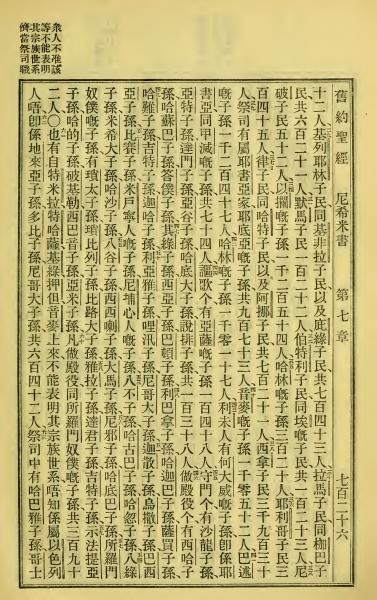 舊約聖經 尼希米書 第七章 七百二十六
十二人基列耶林子民同基非拉子民以及庇綠子民共七百四十三人拉馬子民同枷巴子
民共六百二十一人默馬子民一百二十二人伯特利子民同埃嘅子民共一百二十三人尼
破子民五十二人以攔嘅子孫一千二百五十四人哈林嘅子孫三百二十人耶利哥子民三
百四十五人律子民同哈特子民以及阿挪子民共七百二十一人西拿子民三千九百三十
人祭司有屬耶書亞家耶底亞嘅子孫共九百七十三人音麥嘅子孫一千零五十二人巴述
嘅子孫一千二百四十七人哈林嘅子孫一千零一十七人利未人有何大威嘅子孫卽係耶
書亞同甲滅嘅子孫共七十四人謳歌个有亞薩嘅子孫一百四十八人守門个有沙龍子孫
亞特子孫達門子孫亞谷子孫哈底大子孫說排子孫共一百三十八人做殿役个有西哈子
孫哈蘇巴子孫答俄子孫其綠子孫西亞子孫巴頓子孫利巴拿子孫哈迦巴子孫薩買子孫
哈難子孫吉特子孫迦哈子孫利亞雅子孫哩汛子孫尼哥大子孫迦散子孫烏撒子孫巴西
亞子孫比賽子孫米戶寧人嘅子孫尼埔心人嘅子孫八不子孫哈古巴子孫哈忽子孫八綠
子孫米希大子孫哈沙子孫八谷子孫西西喇子孫大馬子孫尼邪子孫哈底巴子孫所羅門
奴僕嘅子孫有瑣太子孫瑣比列子孫比路大子孫雅拉子孫達君子孫吉特子孫示法提亞
子孫哈的子孫破基勒西巴音子孫亞米子孫凡做殿役同所羅門奴僕嘅子孫共三百九十
二人〇也有自特米拉特哈薩基綠押但音麥上來不能表明其宗族世系唔知係屬以色列
人唔卽係地來亞子孫多比子孫尼哥大子孫共六百四十二人祭司中有哈巴雅子孫哥士
衆人不准該
等不能表明
其宗族世系
儕當祭司職